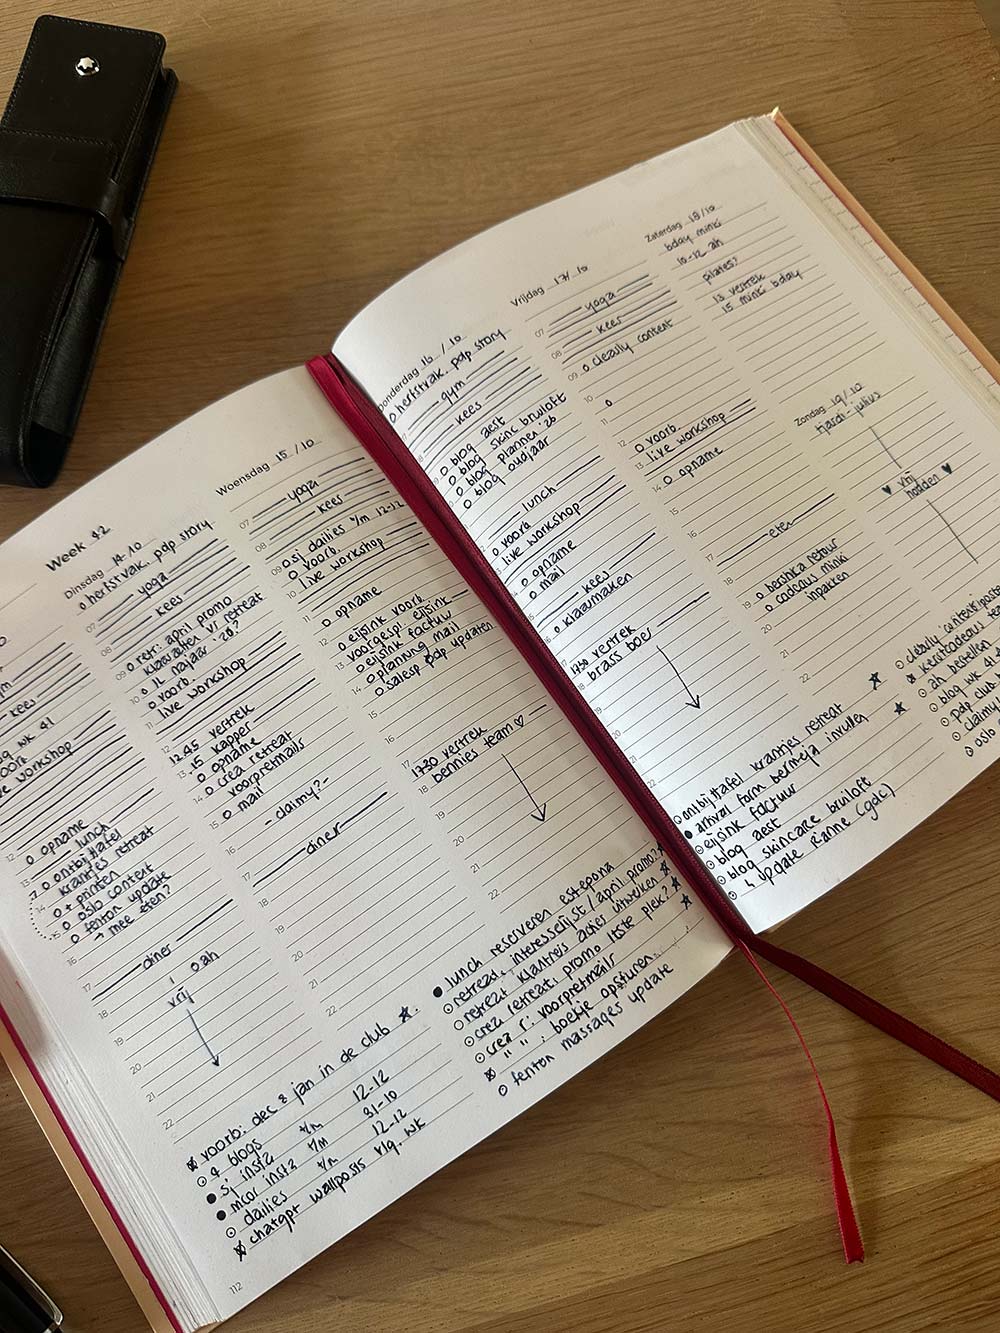 Week 42
gym
kees
wk 41
voorb
workshop
12 o opname
lunch
13 o ontbijttafel
krantjes retreat
14 o + printen
o oslo content
15 o fenton update
→ mee eten?
16
17 diner
18 vrij o ah
19
20
21
22
Dinsdag 14-10
o herfstvak. pdp story
yoga
07
kees
08
o retr: april promo
09 klaarzetten v/ retreat
10 o jl najaar '26?
o voorb.
11 live workshop
12 12.45 vertrek
13 .15 kapper
o opname
14 o crea retreat
voorpretmails
15 o mail
16 - claimy? -
17 diner
18
19
20
21
22
Woensdag 15/10
yoga
07
kees
08
09 o sj dailies t/m 12-12
o voorb.
10 live workshop
11 o opname
12 o eijsink voorb.
13 voorgespr eijsink
o eijsink factuur
14 o planning mail
o salesp pdp updaten
15
16
17 1730 vertrek
bennies team ♡
18
19
20
21
22
voorb: dec & jan in de club ★
4 blogs
sj insta t/m 12-12
mcor insta t/m 31-10
dailies t/m 12-12
chatgpt wallposts vlg. wk
lunch reserveren estepona
retreat, interesselijst/april promo? ★
retreat klantreis acties uitwerken ★
crea retreat: promo ltste plek? ★
crea r: voorpretmails ★
" " : boekje opsturen
fenton massages update
112
Donderdag 16/10
o herfstvak. pdp story
gym
kees
o blog aest
o blog skinc bruiloft
o blog plannen '26
o blog oudjaar
lunch
o voorb
live workshop
o opname
o mail
kees
o klaarmaken
17 1730 vertrek
brass boer
18
19
20
21
22
Vrijdag 17/10
yoga
07
kees
08
09 o cleaily content
10
11 o
12 o voorb.
13 live workshop
14 o opname
15
16
17 eten
18
o bershka retour
19 o cadeaus minki
inpakken
20
21
22
Zaterdag 18/10
bday minki
10-12 ah
pilates?
13 vertrek
15 minki bday
Zondag 19/10
tjardi - julius
♥ vrij ♥
houden
ontbijttafel krantjes retreat
arrival form bermeja invullen ★
eijsink factuur ★
blog aest
blog skincare bruiloft
update rianne (gac)
o cleaily content/post
kerstcadeaus
o ah bestellen
o blog wk 41
o pdp club
o claimy
o oslo